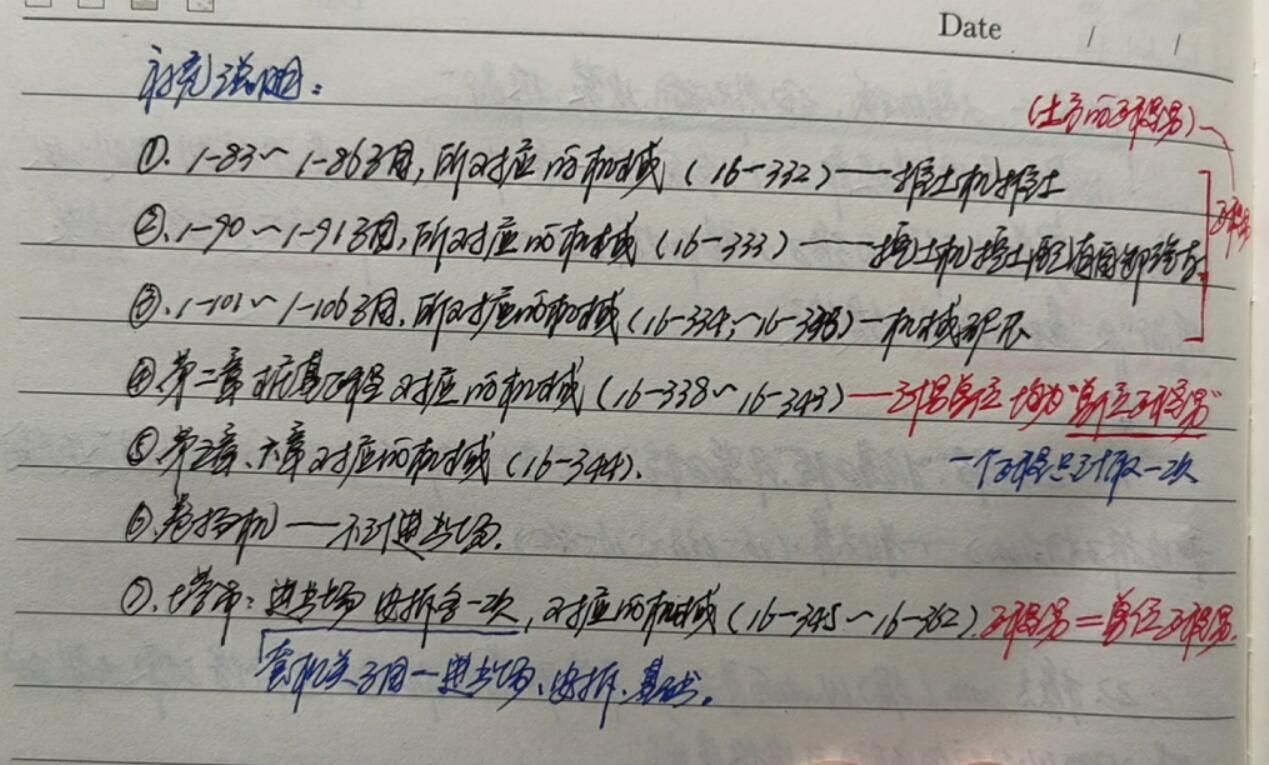 Date / /
补充说明：
(土方的工程量)
①. 1-83～1-86子目, 所对应的机械 (16-332) —— 推土机推土
工程量
②. 1-90～1-91子目, 所对应的机械 (16-333) —— 挖土机挖土配自卸
③. 1-101～1-106子目, 所对应的机械 (16-334, ～16-
④ 第二章 桩基工程 对应的机械 (16-338～16-343) —— 工程量单位 均为"单位工程量"
⑤ 第三章、六章对应的机械 (16-344). 一个工程只计取一次
⑥. 卷扬机 —— 不计进出场.
⑦. 塔吊: 进出场 安拆各一次, 对应的机械 (16-345～16-362). 工程量=单位工程量.
套相关子目—进出场、安拆、基础。